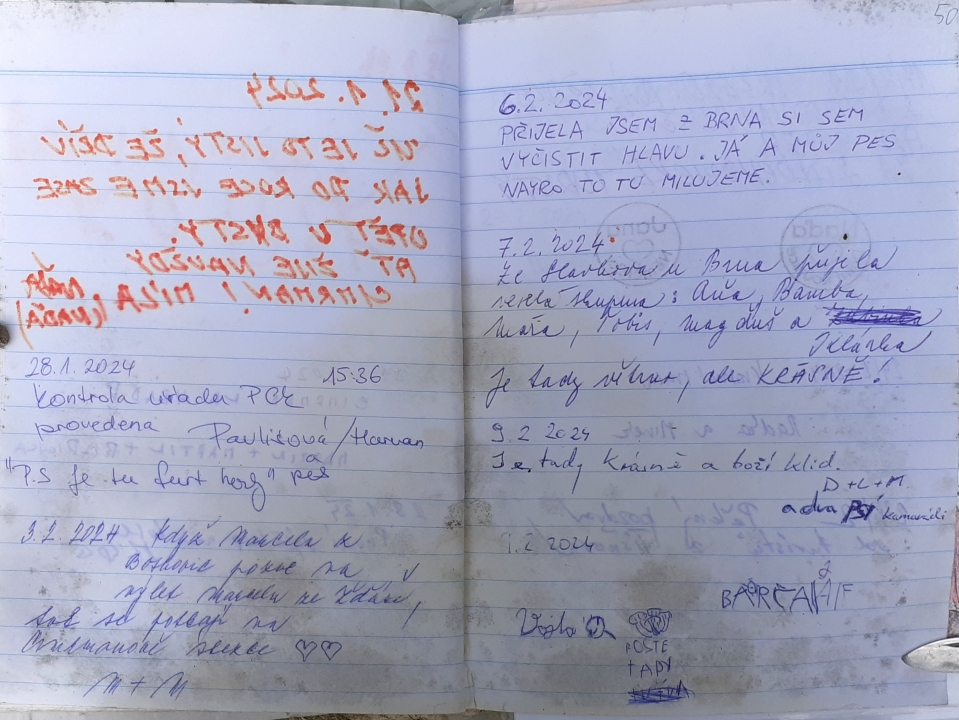 50
21. 1. 2024
UŠ JE TO JISTÝ, ŠE DĚÍV
JAK DO ROCE JSME ZASE
OPĚT V
AŤ ŠIJE NAVŠDY
CIMRMAN! MIŠA,
28.1.2024 15:36
Kontrola úřadu PCK
provedena Pavlišová/Harvan
a
"P.S Je tu furt hezky" pes
3.2.2024 Když Marcela z
Boskovic pozve na
výlet Marcelu ze Žďáru,
tak se potkají na
Cimrmanově ♡♡
M + M
6.2. 2024
PŘIJELA JSEM Z BRNA SI SEM
VYČISTIT HLAVU. JÁ A MŮJ PES
NAYRO TO TU MILUJEME.
7.2.2024
Ze Slavkova u Brna přijela
veselá skupina: Aňa, Bamba,
Máťa, Tobis, Magduš a
Klárka
Je tady větrno, ale KRÁSNĚ!
9.2 2024
Je tady krásně a boží klid.
D+L+M
a dva psí kamarádi
9.2 2024
BARČA
Vojta